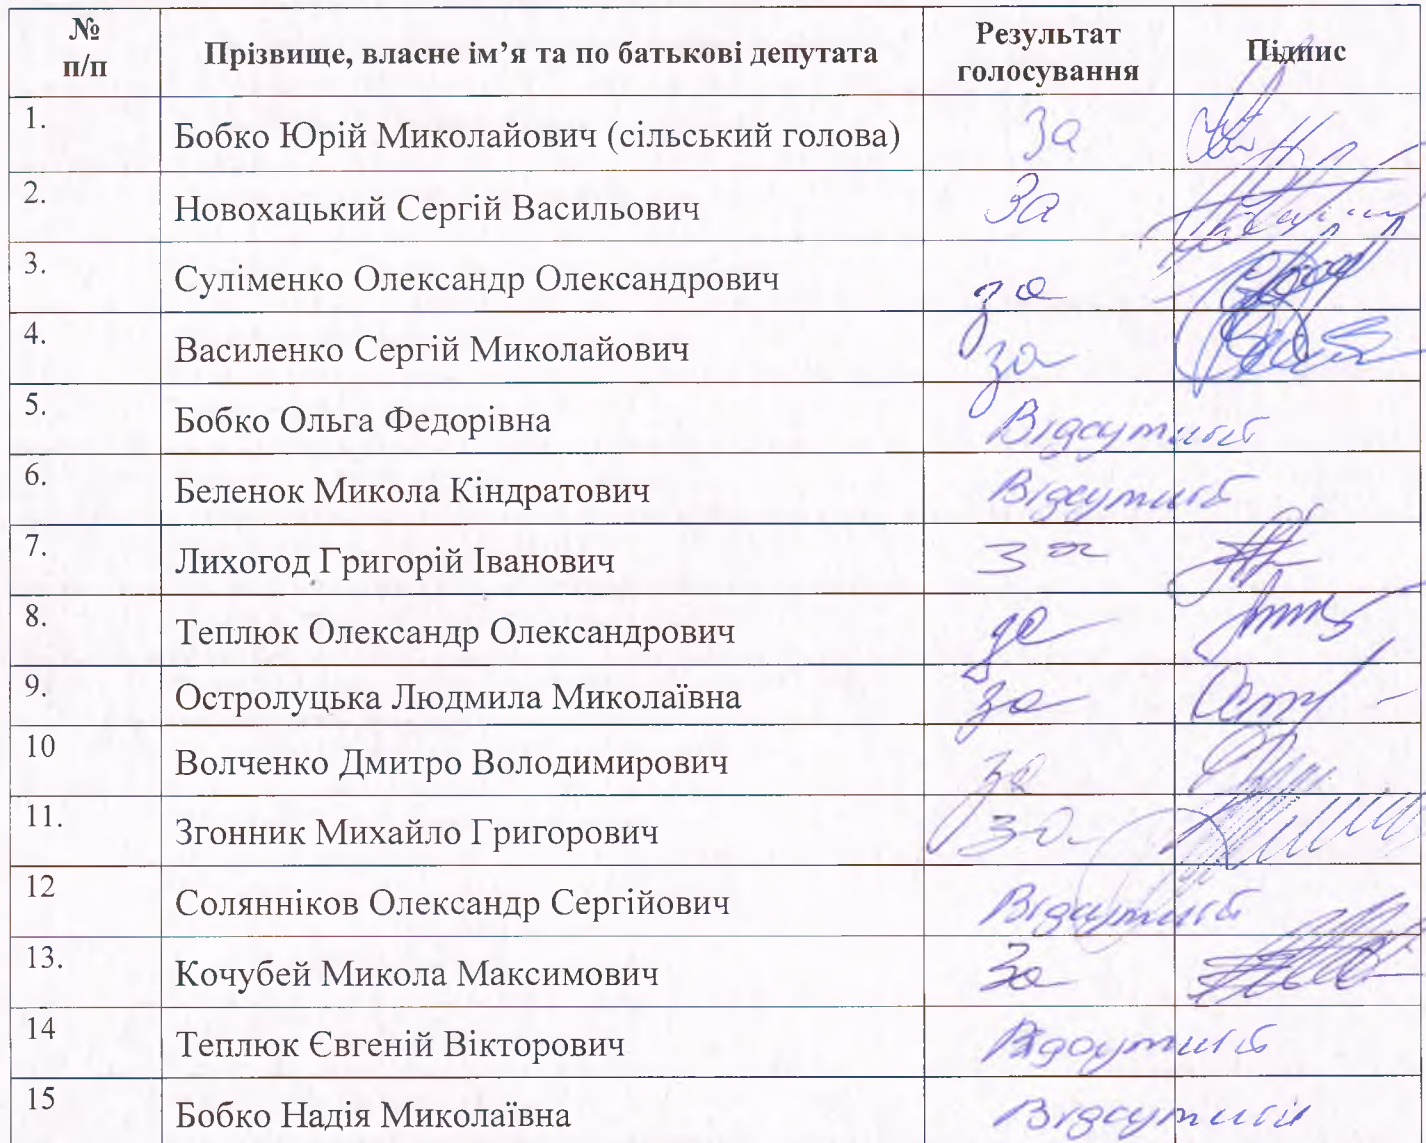 № п/п Прізвище, власне ім’я та по батькові депутата Результат голосування Підпис
1. Бобко Юрій Миколайович (сільський голова) За
2. Новохацький Сергій Васильович За
3. Суліменко Олександр Олександрович за
4. Василенко Сергій Миколайович за
5. Бобко Ольга Федорівна Відсутній
6. Беленок Микола Кіндратович Відсутній
7. Лихогод Григорій Іванович За
8. Теплюк Олександр Олександрович за
9. Остролуцька Людмила Миколаївна за
10 Волченко Дмитро Володимирович за
11. Згонник Михайло Григорович За
12 Солянніков Олександр Сергійович Відсутній
13. Кочубей Микола Максимович За
14 Теплюк Євгеній Вікторович Відсутній
15 Бобко Надія Миколаївна Відсутній